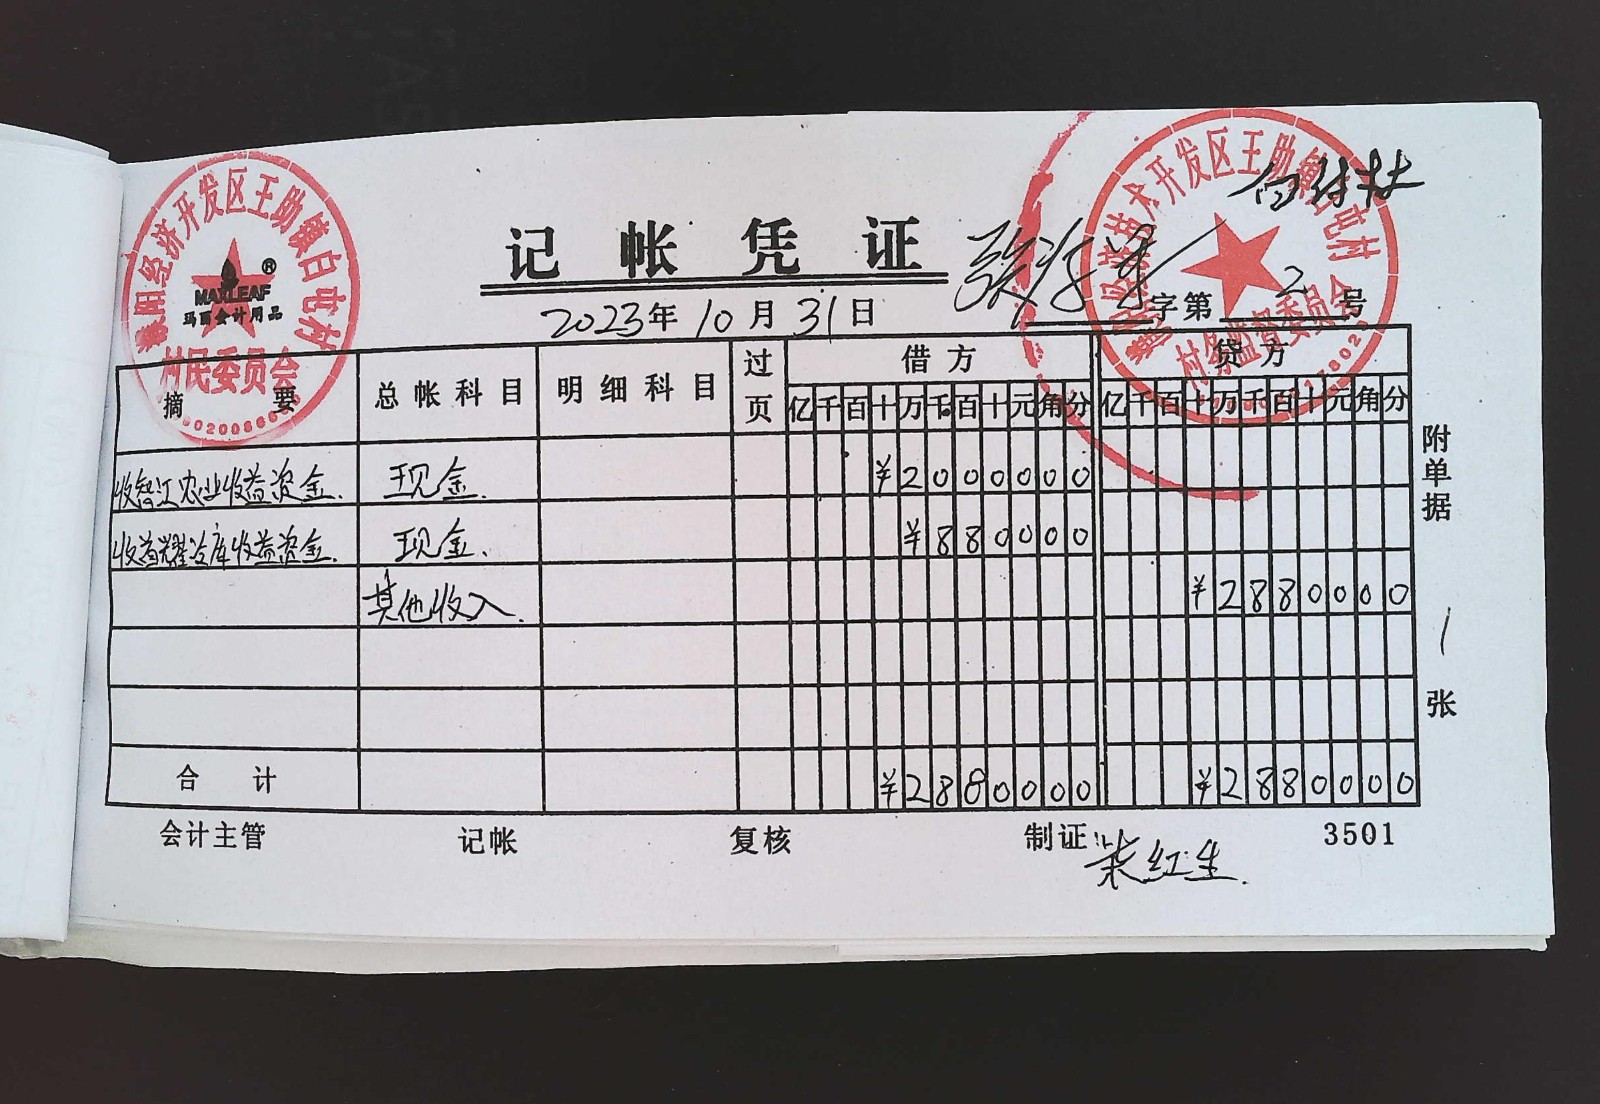 濮阳经济开发区王助镇白屯村
村民委员会
MAXLEAF®
玛丽会计用品
记帐凭证
2023年10月31日
字第2号
村务监督委员会
摘要 总帐科目 明细科目 过页 借方 贷方
亿千百十万千百十元角分 亿千百十万千百十元角分
收智江农业收益资金. 现金. ¥2000000
收首耀冷库收益资金. 现金. ¥880000
其他收入. ¥2880000
合计 ¥2880000 ¥2880000
附单据 1 张
会计主管 记帐 复核 制证 柴红生. 3501